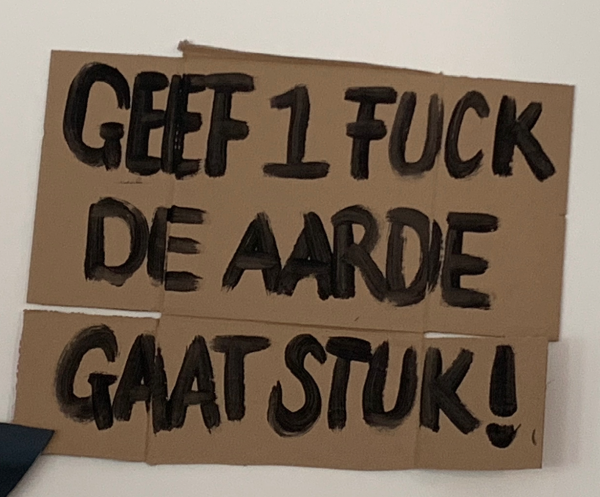 GEEF 1 FUCK
DE AARDE
GAAT STUK!